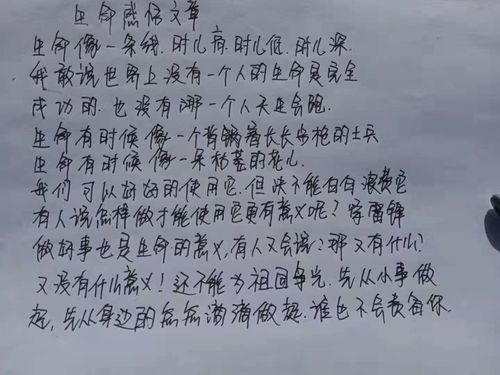 生命感悟文章
生命像一条线,时儿高,时儿低,时儿深.
我敢说世界上没有一个人的生命是完全
成功的.也没有哪一个人天生会跑.
生命有时候像一个背躺着长长步枪的士兵
生命有时候像一朵枯萎的花儿.
我们可以好好的使用它.但决不能白白浪费它
有人说怎样做才能使用它更有意义呢?学雷锋
做好事也是生命的意义,有人又会说:那又有什么?
又没有什么意义!还不能为祖国争光.先从小事做
起,先从身边的点点滴滴做起.谁也不会责备你.